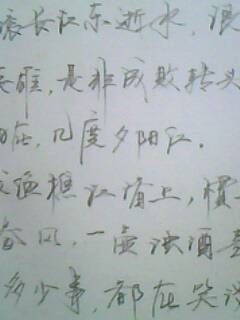 滚长江东逝水，浪
英雄，是非成败转头
旧在，几度夕阳红．
发渔樵江渚上，惯
春风，一壶浊酒喜
多少事，都在笑谈